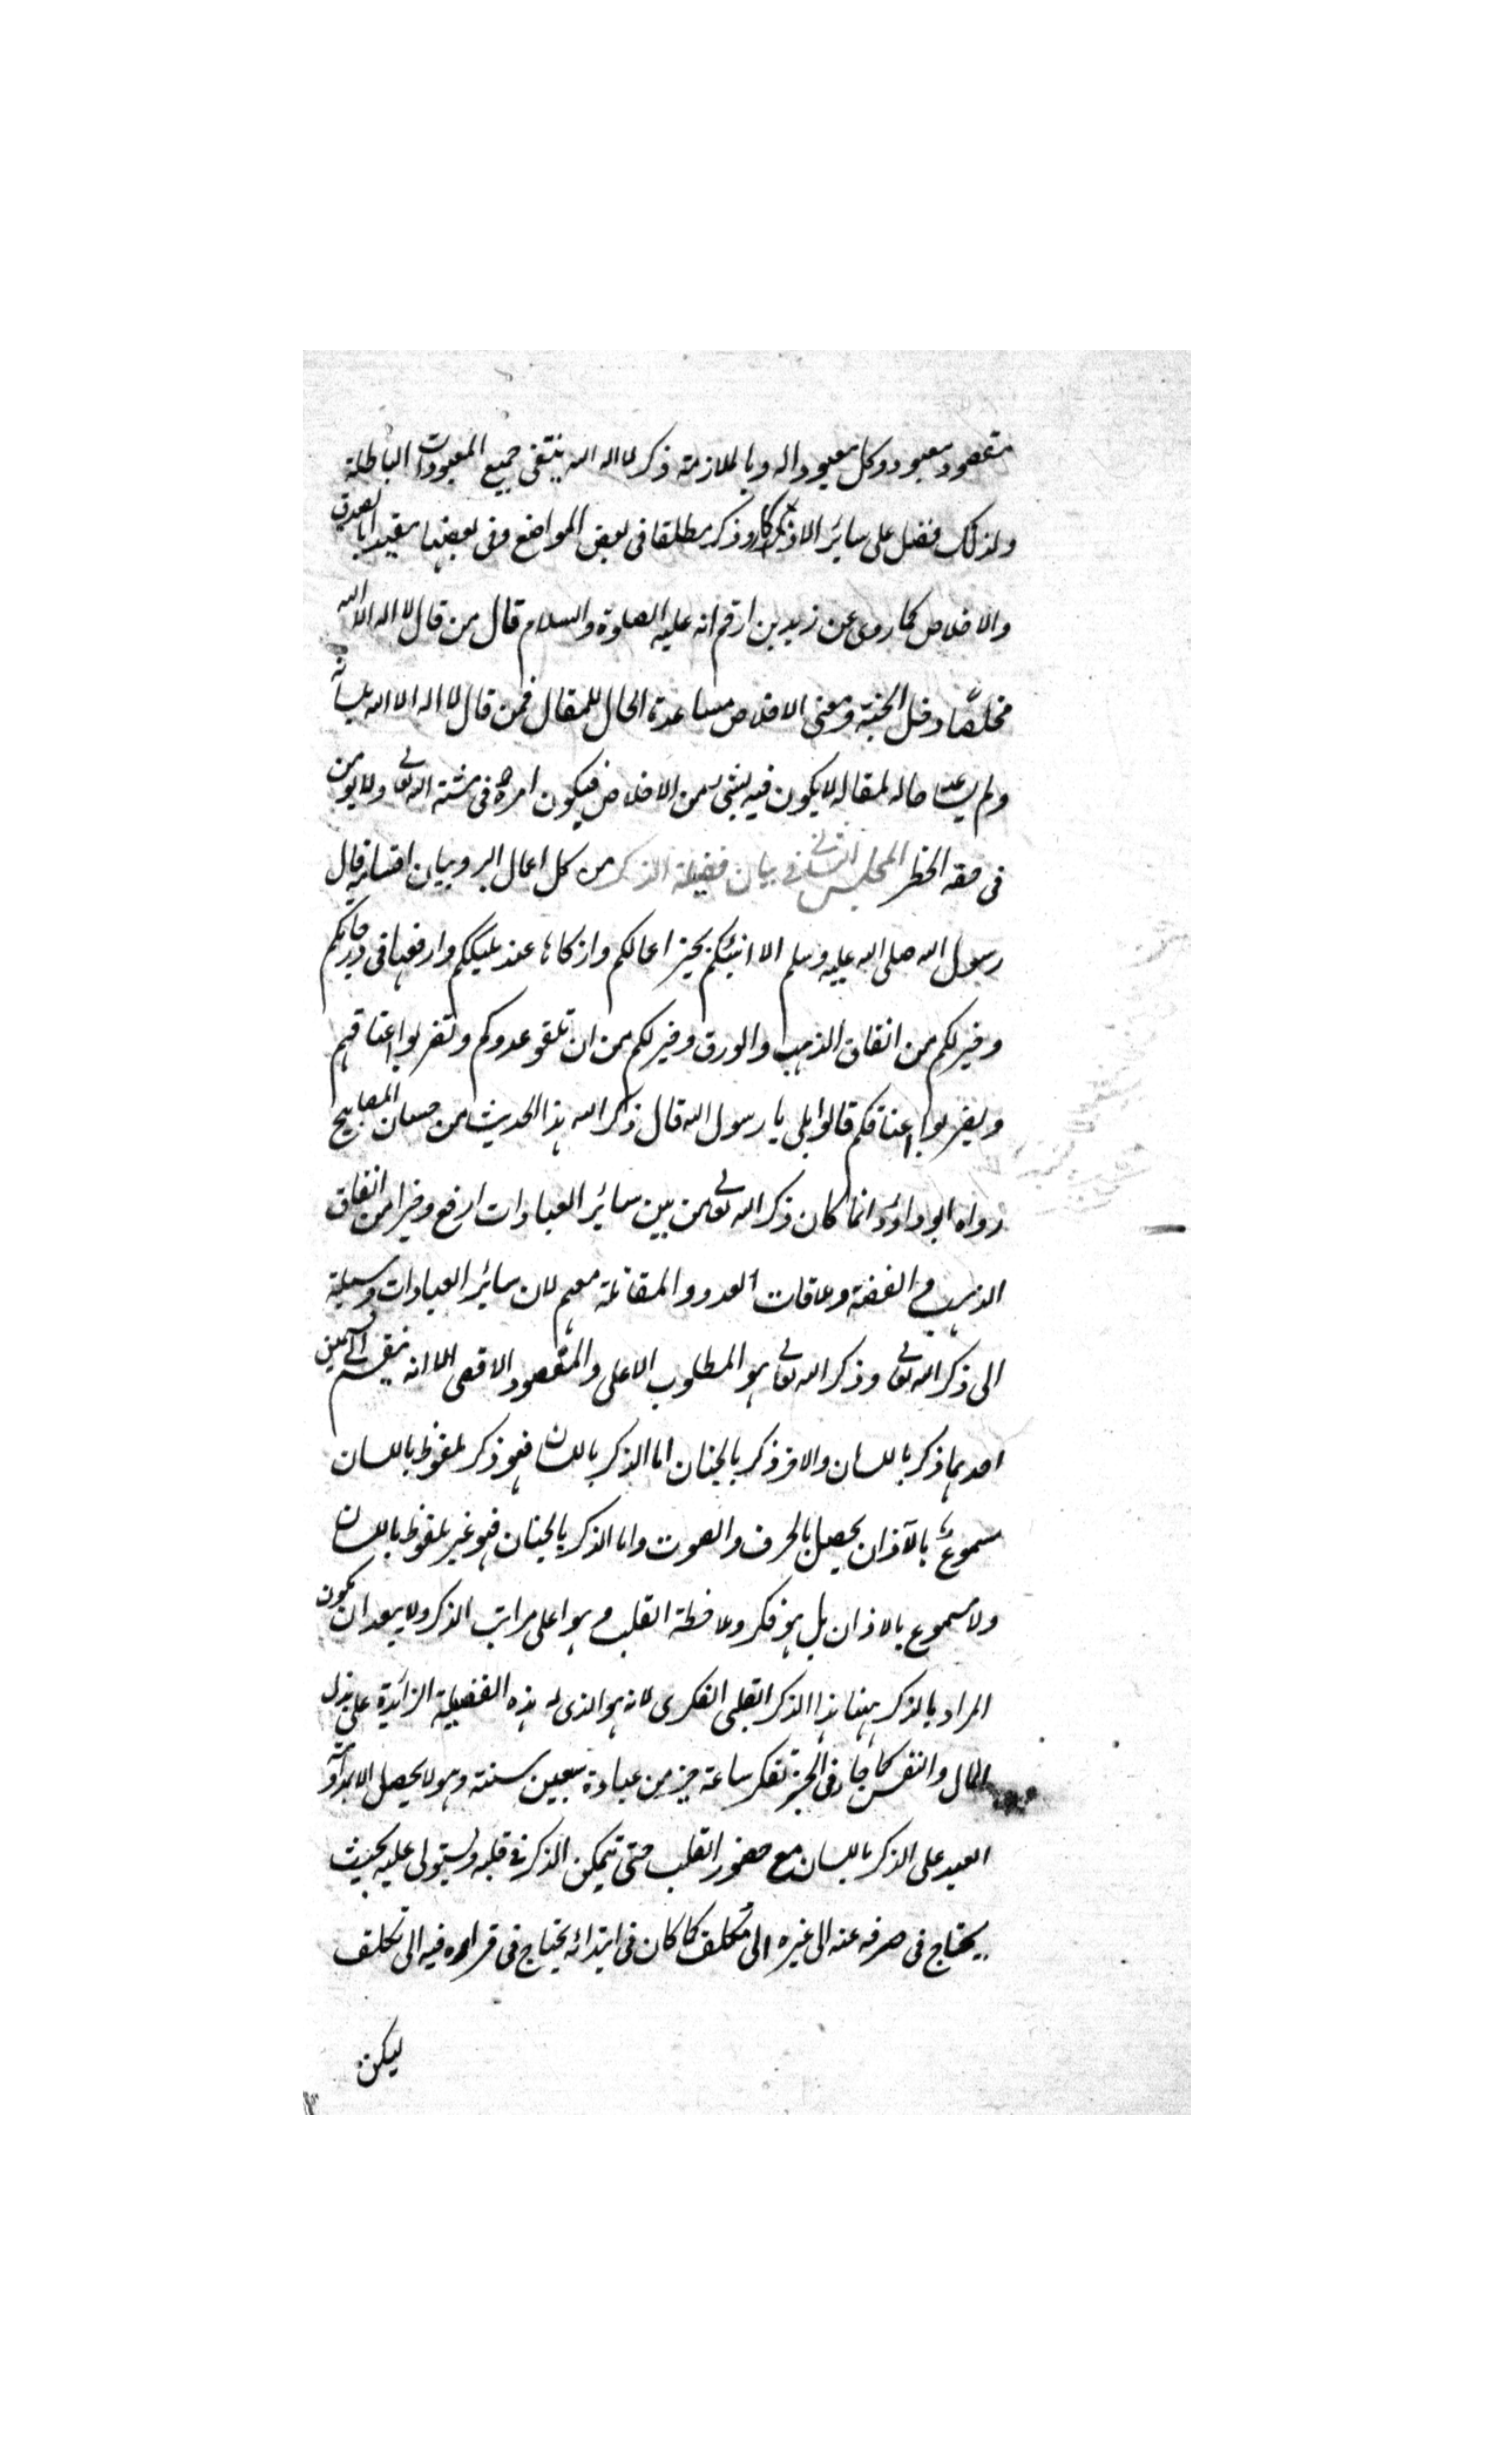 مقصود معبود وكل معبود اله وبالملازمة ذكر لا اله الا الله ينتفى جميع المعبودات الباطلة
ولذلك فضل على سائر الاذكار وذكر مطلقا فى بعض المواضع وفى بعضها مقيدا بالصدق
والاخلاص كما روى عن زيد بن ارقم انه عليه الصلوة والسلام قال من قال لا اله الا الله
مخلصًا دخل الجنة ومعنى الاخلاص مساعدة الحال للمقال فمن قال لا اله الا الله بلسانه
ولم يساعد حاله لمقاله لا يكون فيه شئ من الاخلاص فيكون امره فى مشية الله تعالى ولا يؤمن
فى حقه الخطر المجلس الثانى فى بيان فضيلة الذكر من كل اعمال البر وبيان اقسامه قال
رسول الله صلى الله عليه وسلم الا انبئكم بخير اعمالكم وازكاها عند مليككم وارفعها فى درجاتكم
وخير لكم من انفاق الذهب والورق وخير لكم من ان تلقو عدوكم وتضربوا اعناقهم
ويضربوا اعناقكم قالوا بلى يا رسول الله قال ذكر الله هذا الحديث من حسان المصابيح
رواه ابو داؤد انما كان ذكر الله تعالى من بين سائر العبادات ارفع وخيرا من انفاق
الذهب والفضة وملاقات العدو والمقاتلة معهم لان سائر العبادات وسيلة
الى ذكر الله تعالى وذكر الله تعالى هو المطلوب الاعلى والمقصود الاقصى الا انه ينقسم الى قسمين
احدهما ذكر باللسان والاخر ذكر بالجنان اما الذكر باللسان فهو ذكر ملفوظ باللسان
مسموع بالآذان يحصل بالحرف والصوت واما الذكر بالجنان فهو غير ملفوظ باللسان
ولا مسموع بالاذان بل هو فكر وملاحظة القلب وهو اعلى مراتب الذكر ولا يبعد ان يكون
المراد بالذكر ههنا هذا الذكر القلبى الفكرى لانه هو الذى له هذه الفضيلة الزائدة على بذل
المال والنفس كما جاء فى الخبر تفكر ساعة خير من عبادة سبعين سنة وهو لا يحصل الا بمداومة
العبد على الذكر باللسان مع حضور القلب حتى يتمكن الذكر فى قلبه ويستولى عليه بحيث
يحتاج فى صرفه عنه الى غيره الى تكلف كما كان فى ابتدائه يحتاج فى قراره فيه الى تكلف
ليكن